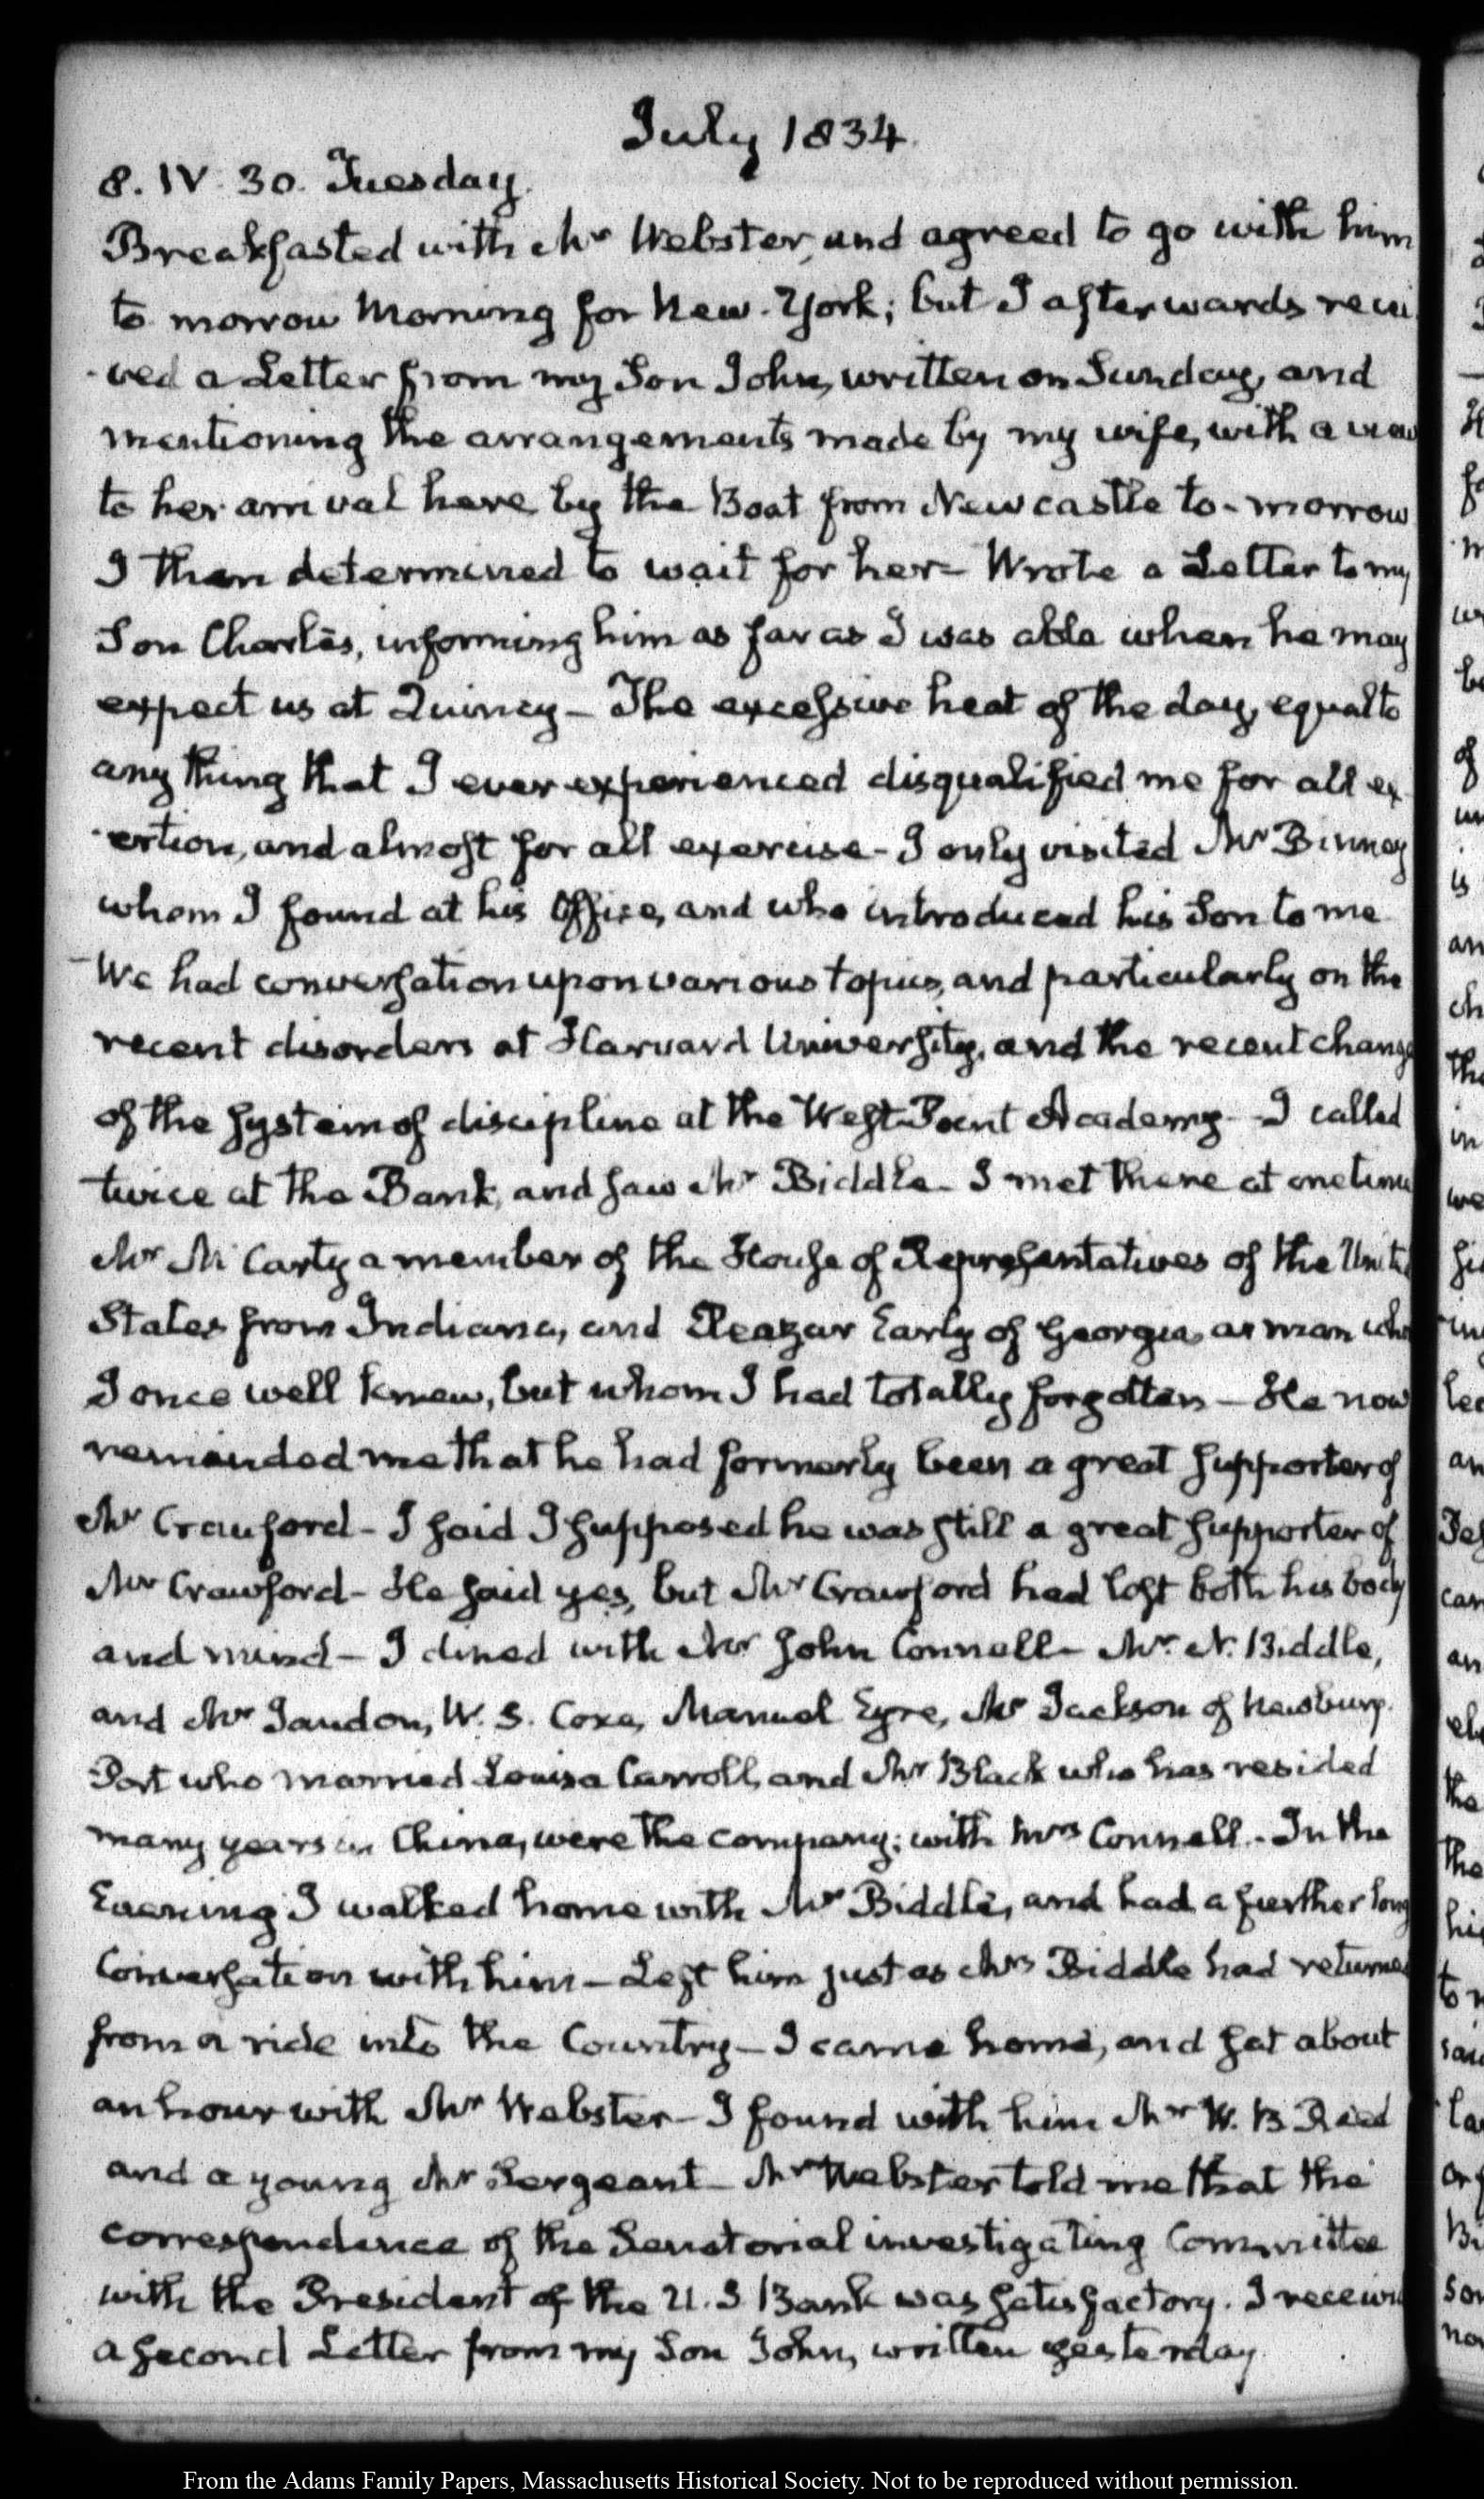 July 1834.
8. IV. 30. Tuesday.
Breakfasted with Mr Webster, and agreed to go with him
to morrow Morning for New-York; but I afterwards recei
-ved a Letter from my Son John, written on Sunday, and
mentioning the arrangements made by my wife, with a view
to her arrival here by the Boat from Newcastle to-morrow
I then determined to wait for her- Wrote a Letter to my
Son Charles, informing him as far as I was able when he may
expect us at Quincy- The excessive heat of the day, equal to
any thing that I ever experienced disqualified me for all ex
-ertion, and almost for all exercise- I only visited Mr Binney
whom I found at his Office, and who introduced his Son to me
-We had conversation upon various topics, and particularly on the
recent disorders at Harvard University, and the recent change
of the system of discipline at the West-Point Academy- I called
twice at the Bank, and saw Mr Biddle- I met there at one time
Mr McCarty a member of the House of Representatives of the United
States from Indiana, and Eleazar Early of Georgia, a man who
I once well knew, but whom I had totally forgotten- He now
reminded me that he had formerly been a great supporter of
Mr Crawford- I said I supposed he was still a great supporter of
Mr Crawford- He said yes, but Mr Crawford had lost both his body
and mind- I dined with Mr John Connell- Mr N. Biddle,
and Mr Jaudon, W. S. Coxe, Manuel Eyre, Mr Jackson of Newbury-
Port who married Louisa Carroll, and Mr Black who has resided
many years in China, were the company; with Mrs Connell.- In the
Evening I walked home with Mr Biddle, and had a further long
Conversation with him- Left him just as Mrs Biddle had returned
from a ride into the Country- I came home, and sat about
an hour with Mr Webster- I found with him Mr W. B Reed
and a young Mr Sergeant- Mr Webster told me that the
correspondence of the Senatorial investigating Committee
with the President of the U.S Bank was satisfactory. I received
a second Letter from my Son John, written yesterday
From the Adams Family Papers, Massachusetts Historical Society. Not to be reproduced without permission.